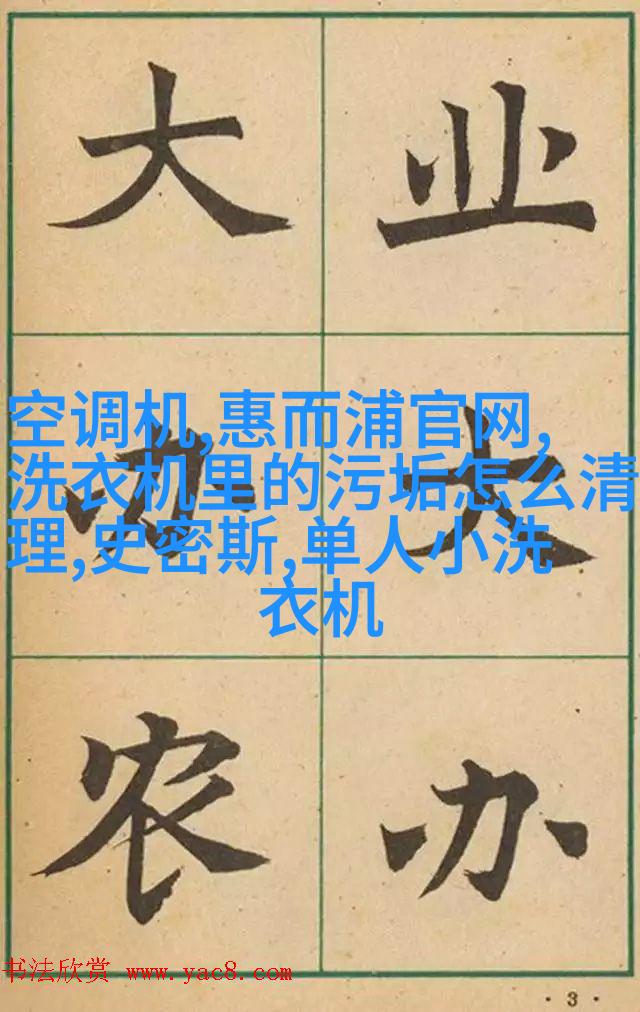 大办农
业大办
空调机,惠而浦官网,
洗衣机里的污垢怎么清
理,史密斯,单人小洗
衣机
书法欣赏 www.yac8.com
·3·